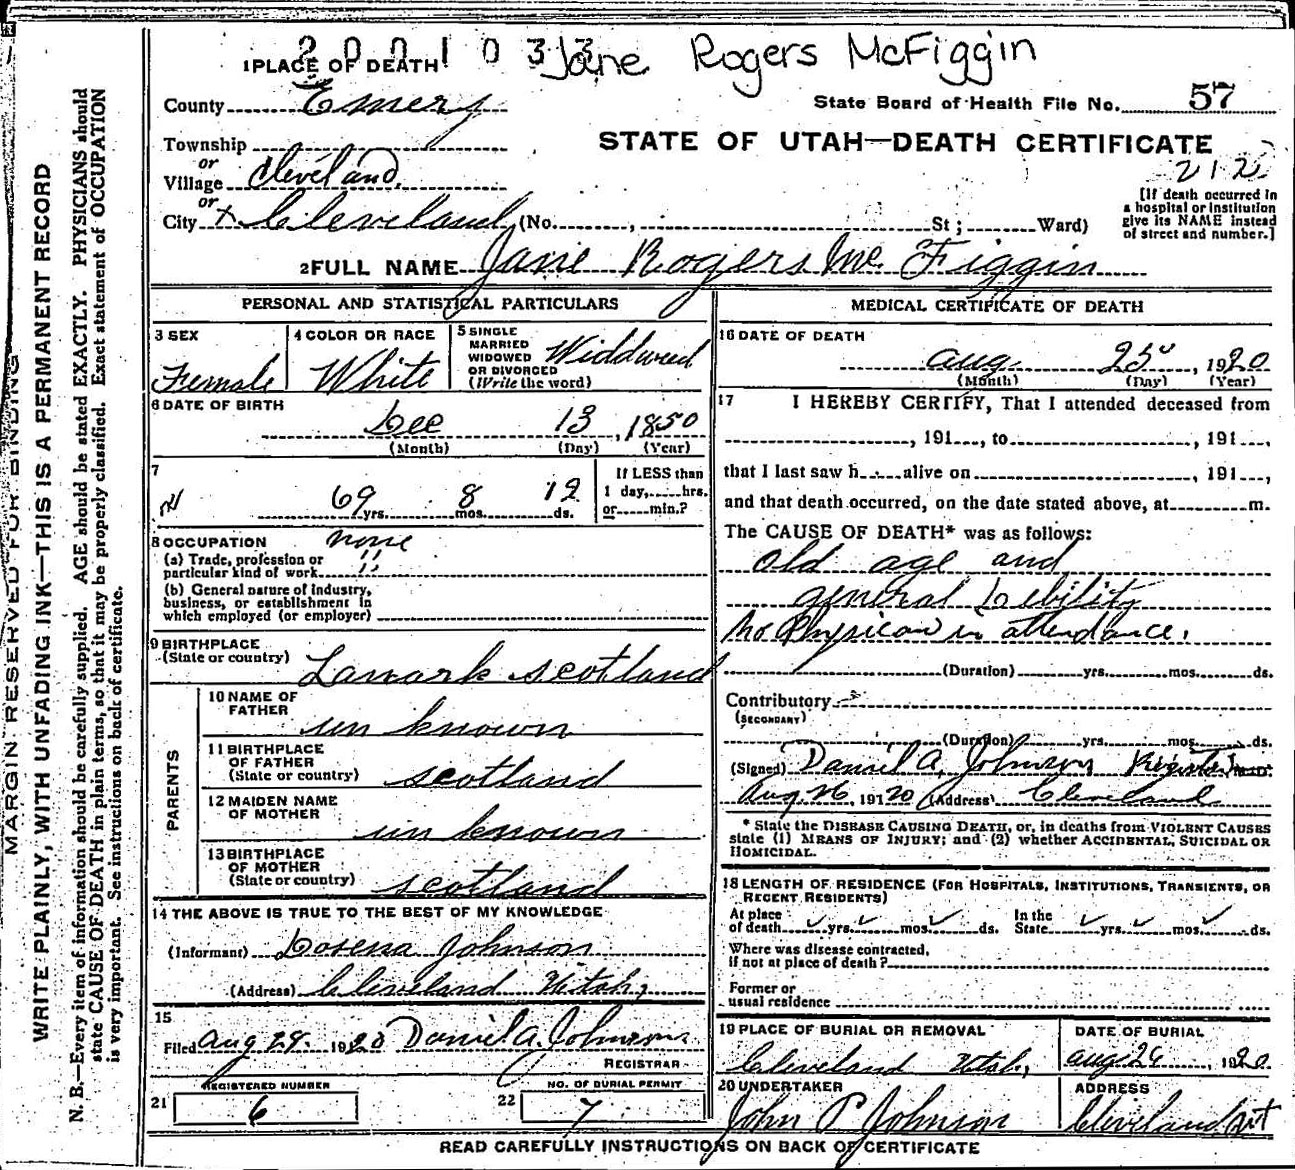 2001033 Jane Rogers McFiggin
1 PLACE OF DEATH
County Emery
State Board of Health File No. 57
STATE OF UTAH—DEATH CERTIFICATE
212
Township
or
Village Cleveland
or
City x Cleveland (No. , St; Ward)
[If death occurred in
a hospital or institution
give its NAME instead
of street and number.]
2 FULL NAME Jane Rogers Mc Figgin
PERSONAL AND STATISTICAL PARTICULARS
3 SEX
Female
4 COLOR OR RACE
White
5 SINGLE
MARRIED
WIDOWED
OR DIVORCED
(Write the word)
Widdwed
6 DATE OF BIRTH
Dec 13, 1850
(Month) (Day) (Year)
7
69 yrs. 8 mos. 12 ds.
If LESS than
1 day, hrs.
or min.?
8 OCCUPATION none
(a) Trade, profession or
particular kind of work "
(b) General nature of industry,
business, or establishment in
which employed (or employer)
9 BIRTHPLACE
(State or country) Lanark scotland
PARENTS
10 NAME OF
FATHER un known
11 BIRTHPLACE
OF FATHER
(State or country) scotland
12 MAIDEN NAME
OF MOTHER un known
13 BIRTHPLACE
OF MOTHER
(State or country) scotland
14 THE ABOVE IS TRUE TO THE BEST OF MY KNOWLEDGE
(Informant) Losena Johnson
(Address) Cleveland Utah,
15
Filed Aug 29, 1920 Daniel A. Johnson
REGISTRAR
REGISTERED NUMBER
21 6
NO. OF BURIAL PERMIT
22 7
MEDICAL CERTIFICATE OF DEATH
16 DATE OF DEATH
aug. 25, 1920
(Month) (Day) (Year)
17 I HEREBY CERTIFY, That I attended deceased from
, 191 , to , 191 ,
that I last saw h alive on , 191 ,
and that death occurred, on the date stated above, at m.
The CAUSE OF DEATH* was as follows:
old age and
general Debility
No Physican in attendance.
(Duration) yrs. mos. ds.
Contributory
(SECONDARY)
(Duration) yrs. mos. ds.
(Signed) Daniel A. Johnson Register M.D.
Aug 26, 19120 (Address) Cleveland
* State the DISEASE CAUSING DEATH, or, in deaths from VIOLENT CAUSES
state (1) MEANS OF INJURY; and (2) whether ACCIDENTAL, SUICIDAL OR
HOMICIDAL.
18 LENGTH OF RESIDENCE (FOR HOSPITALS, INSTITUTIONS, TRANSIENTS, OR
RECENT RESIDENTS)
At place
of death yrs. mos. ds. In the
State yrs. mos. ds.
Where was disease contracted,
if not at place of death?
Former or
usual residence
19 PLACE OF BURIAL OR REMOVAL
Cleveland Utah,
DATE OF BURIAL
aug. 26, 1920
20 UNDERTAKER
John P Johnson
ADDRESS
Cleveland Ut
READ CAREFULLY INSTRUCTIONS ON BACK OF CERTIFICATE
MARGIN RESERVED FOR BINDING
WRITE PLAINLY, WITH UNFADING INK—THIS IS A PERMANENT RECORD
N. B.—Every item of information should be carefully supplied. AGE should be stated EXACTLY. PHYSICIANS should
state CAUSE OF DEATH in plain terms, so that it may be properly classified. Exact statement of OCCUPATION
is very important. See instructions on back of certificate.